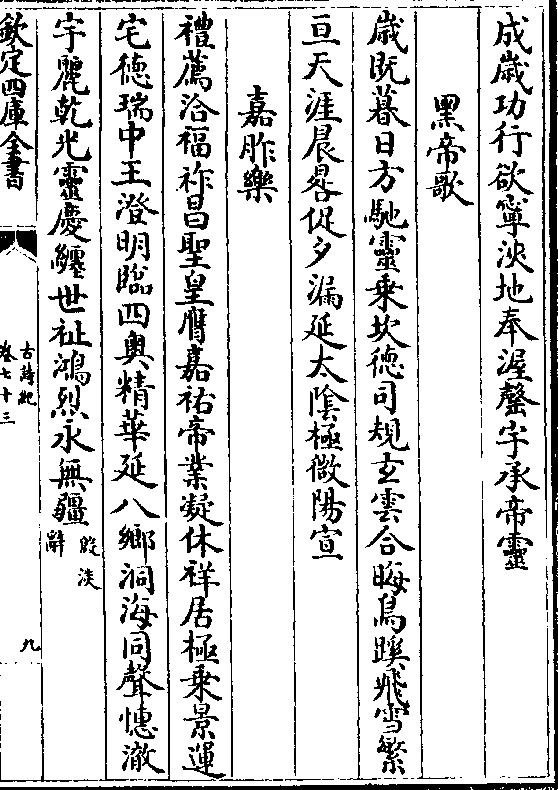 成歳功行欲寧浹地奉渥罄宇承帝靈
黑帝歌
歳既暮日方馳靈乗坎德司規玄雲合晦鳥蹊飛雪繁
亘天涯晨晷促夕漏延太陰極㣲陽宣
嘉胙樂
禮薦洽福祚昌聖皇膺嘉祐帝業凝休祥居極乗景運
宅德瑞中王澄明臨四奥精華延八鄉洞海同聲憓澈
宇麗乾光靈慶纒世祉鴻烈永無疆
殷淡
辭
欽定四庫全書
古詩紀
卷七十三
九